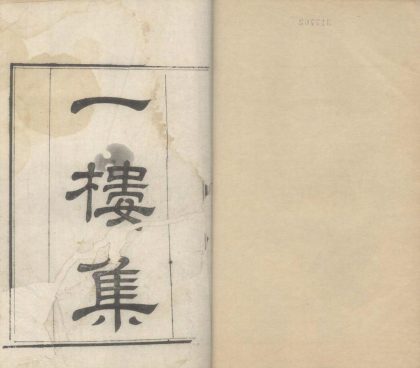 一樓集